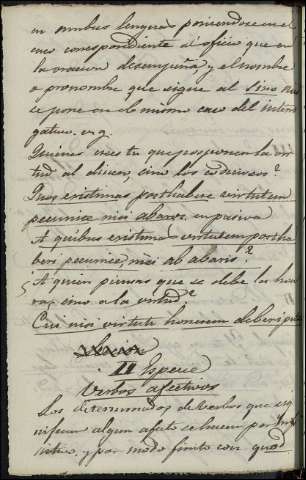 en ambas lenguas poniendose en el
caso correspondiente al oficio que en
la oracion desempeña y el nombre
o pronombre que sigue al sino
se pone en el mismo caso del interro
gativo. v. g.
Quienes crees tu que posponen la vir
tud al dinero, sino los codiciosos?
Quos existimas posthabere virtutem
pecuniæ nisi abaros. en pasiva
A quibus existimas virtutem posthа
beri pecuniæ, nisi ab abaris?
A quien piensas que se debe la hon
ra, sino a la virtud?
Cui nisi virtuti honorem deberi
II Especie
Verbos afectivos
Los determinados de verbos que sig
nifican algun afecto se hacen por Infi
nitivo, y por modo finito con quod